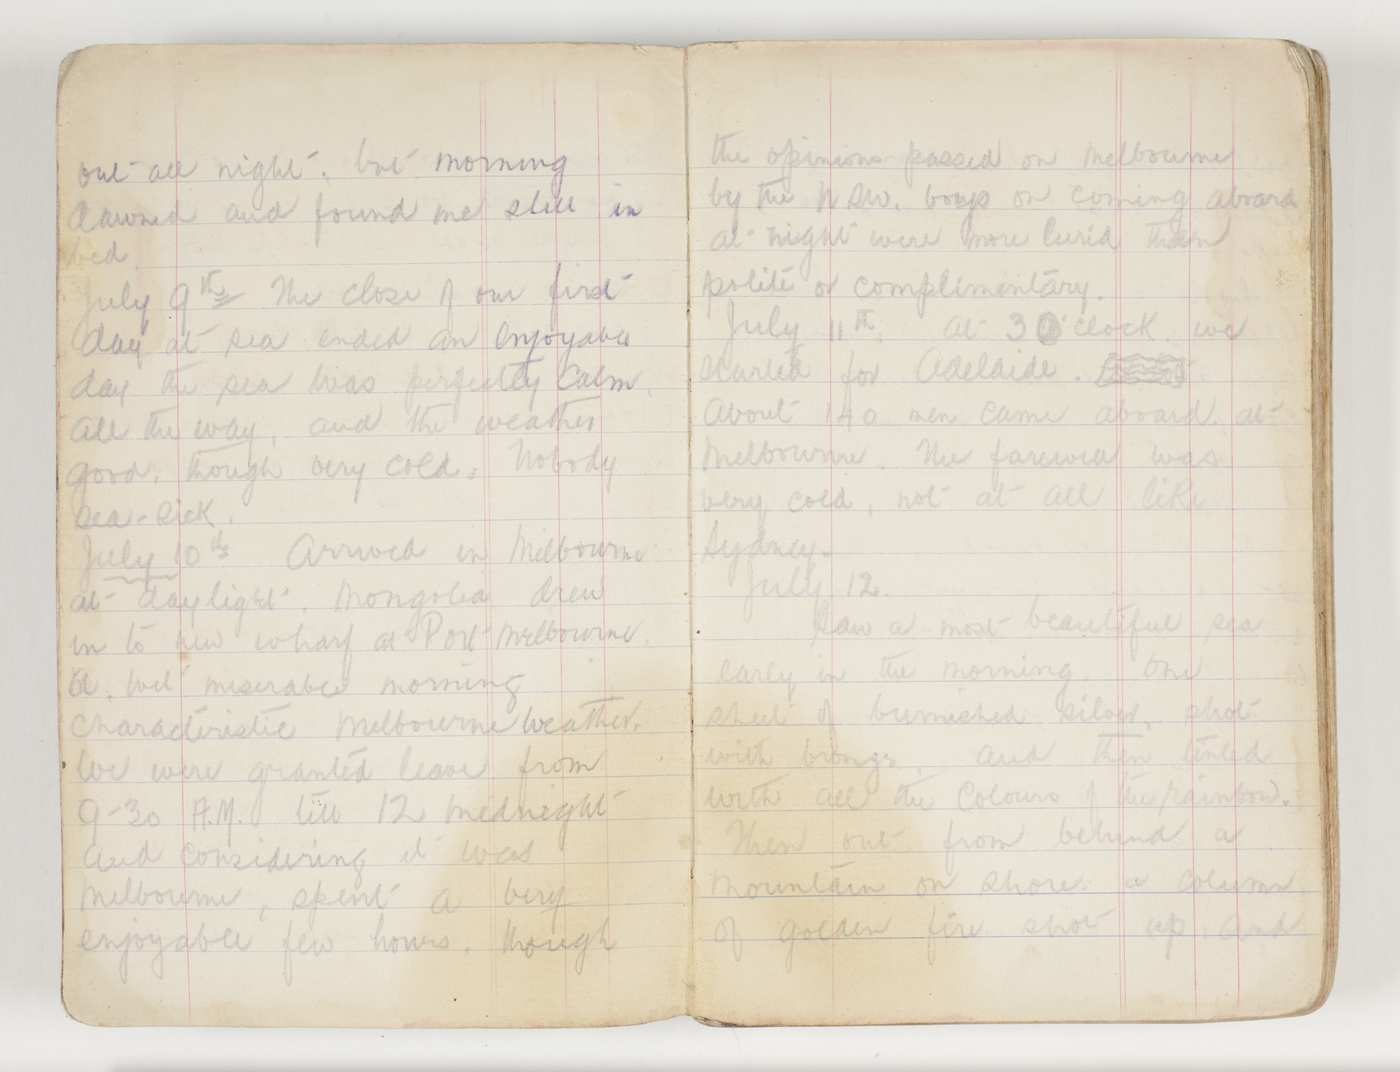 out all night, but morning
dawned and found me still in
bed
July 9th The close of our first
day at sea ended an enjoyable
day the sea was perfectly calm
all the way, and the weather
good, though very cold. Nobody
sea-sick.
July 10th Arrived in Melbourne
at daylight. Mongolia drew
in to new wharf at Port Melbourne.
A wet miserable morning
characteristic Melbourne weather.
We were granted leave from
9-30 A.M. till 12 midnight
and considering it was
Melbourne, spent a very
enjoyable few hours. though
the opinions passed on Melbourne
by the N.S.W. boys on coming aboard
at night were more lurid than
polite or complimentary.
July 11th. At 3 O'clock we
started for Adelaide.
About 140 men came aboard at
Melbourne. The farewell was
very cold, not at all like
Sydney.
July 12.
Saw a most beautiful sea
early in the morning. One
sheet of burnished silver, shot
with bronze, and then tinted
with all the colours of the rainbow.
Then out from behind a
mountain on shore a column
of golden fire shot up, and